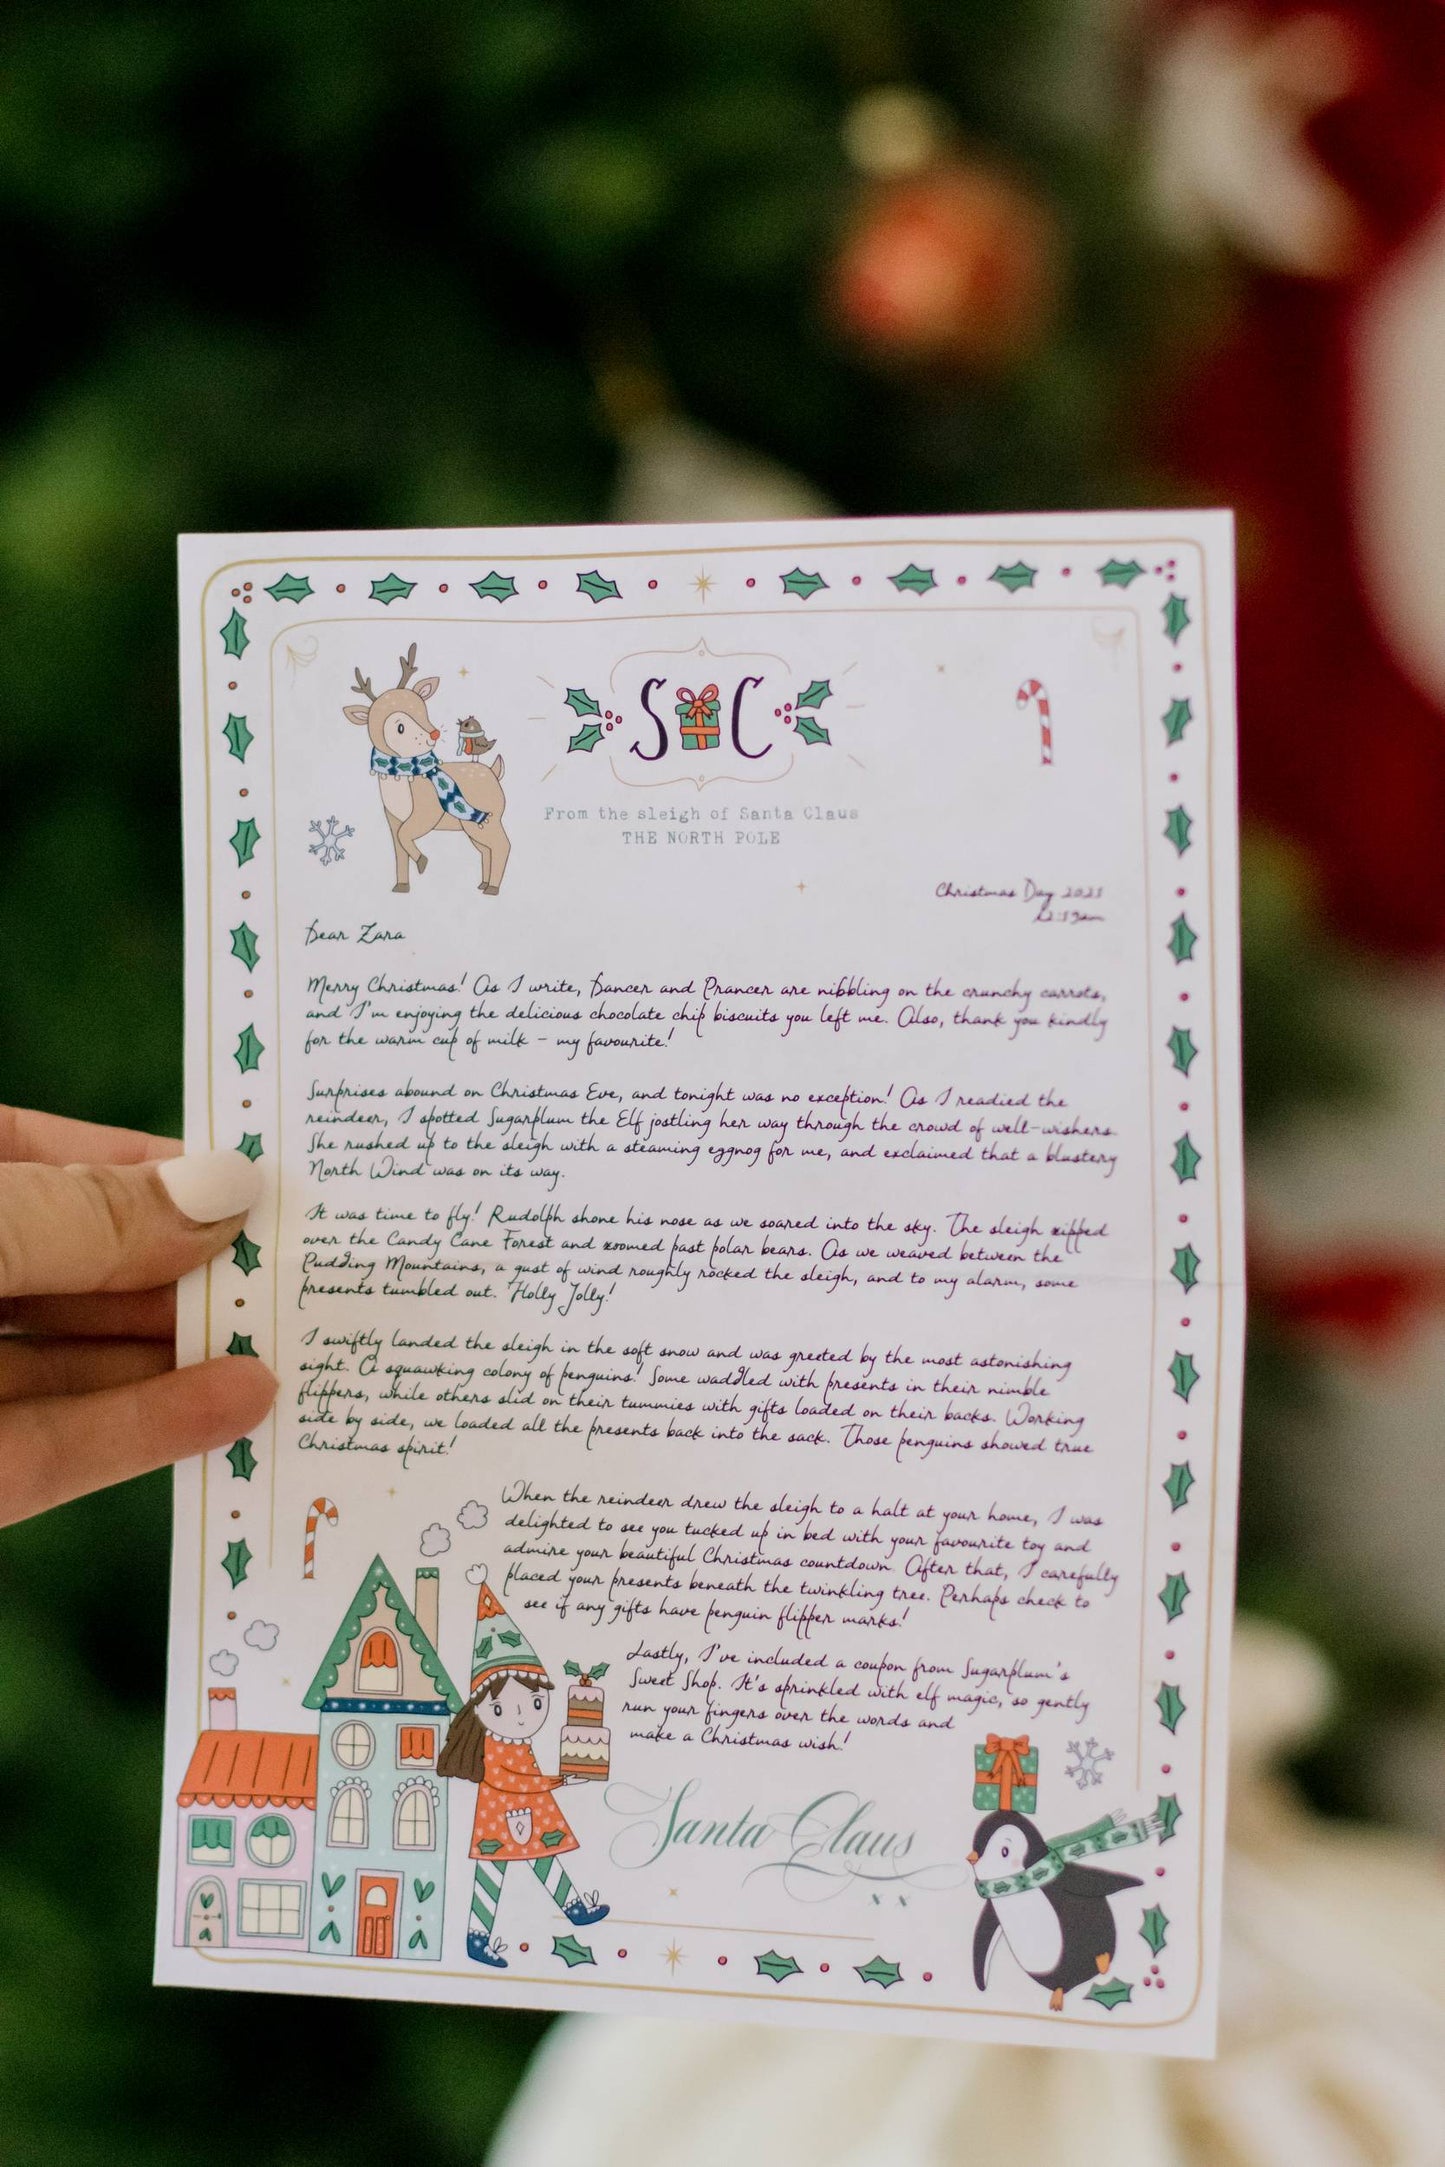 S C
From the sleigh of Santa Claus
THE NORTH POLE
Christmas Day 2021
12:53am
Dear Zara
Merry Christmas! As I write, Dancer and Prancer are nibbling on the crunchy carrots,
and I'm enjoying the delicious chocolate chip biscuits you left me. Also, thank you kindly
for the warm cup of milk - my favourite!
Surprises abound on Christmas Eve, and tonight was no exception! As I readied the
reindeer, I spotted Sugarplum the Elf jostling her way through the crowd of well-wishers.
She rushed up to the sleigh with a steaming eggnog for me, and exclaimed that a blustery
North Wind was on its way.
It was time to fly! Rudolph shone his nose as we soared into the sky. The sleigh zipped
over the Candy Cane Forest and zoomed past polar bears. As we weaved between the
Pudding Mountains, a gust of wind roughly rocked the sleigh, and to my alarm, some
presents tumbled out. Holly Jolly!
I swiftly landed the sleigh in the soft snow and was greeted by the most astonishing
sight. A squawking colony of penguins! Some waddled with presents in their nimble
flippers, while others slid on their tummies with gifts loaded on their backs. Working
side by side, we loaded all the presents back into the sack. Those penguins showed true
Christmas spirit!
When the reindeer drew the sleigh to a halt at your home, I was
delighted to see you tucked up in bed with your favourite toy and
admire your beautiful Christmas countdown. After that, I carefully
placed your presents beneath the twinkling tree. Perhaps check to
see if any gifts have penguin flipper marks!
Lastly, I've included a coupon from Sugarplum's
Sweet Shop. It's sprinkled with elf magic, so gently
run your fingers over the words and
make a Christmas wish!
Santa Claus
x x